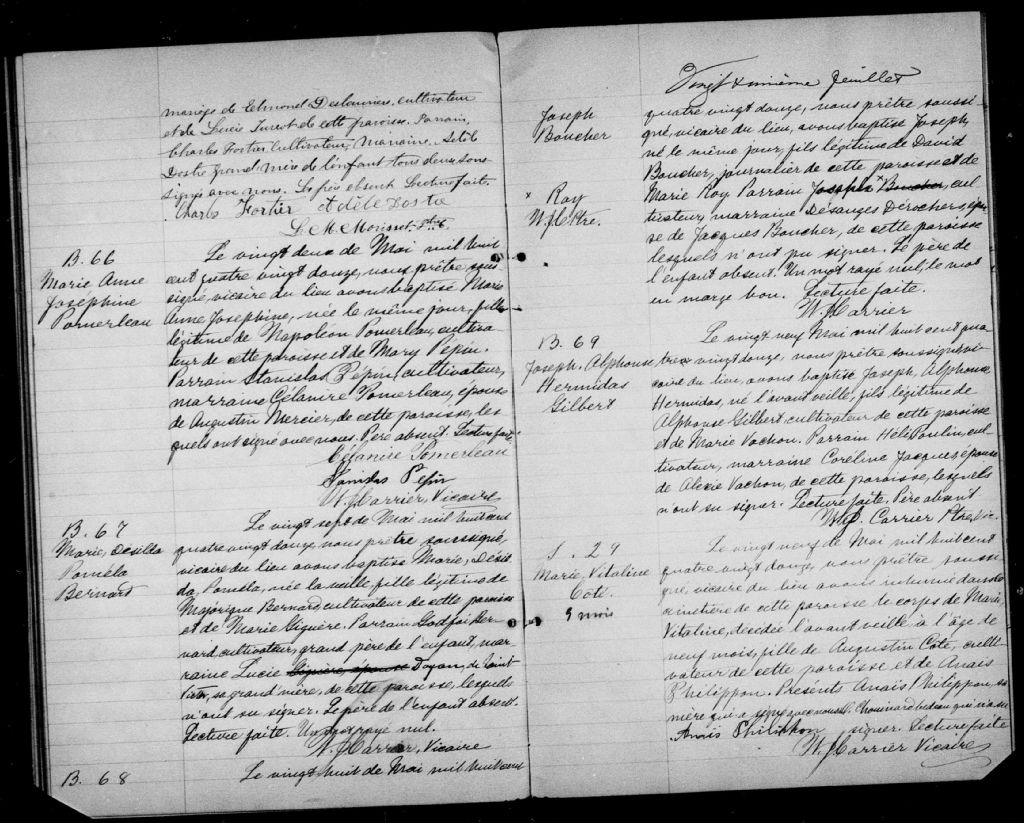 mariage de Edmond Deslauriers, cultivateur
et de Lucie Turcot de cette paroisse. Parrain,
Charles Fortier Cultivateur, Marraine,
grand mère de l'enfant tous deux sous
signés avec nous. Le père absent Lecture faite.
Charles Fortier
B. 66
Marie Anne
Josephine
Pomerleau
Le vingt deux de Mai mil huit
cent quatre vingt douze, nous prêtre, sous-
signé, vicaire du lieu avons baptisé Marie
Anne Josephine, née le même jour, fille
légitime de Napoléon Pomerleau, cultiva
teur de cette paroisse et de Mary Pépin.
Parrain Stanislas Pépin, cultivateur,
marraine Célanire Pomerleau, épouse
de Augustin Mercier, de cette paroisse, les
quels ont signé avec nous. Père absent. Lecture faite.
Célanire Pomerleau
Pépin
W. J. Carrier, Vicaire
B. 67
Marie, Desilda
Poméla
Bernard
Le vingt sept de Mai mil huit cent
quatre vingt douze, nous prêtre soussigné,
vicaire du lieu avons baptisé Marie, Dési
da, Poméla, née la veille, fille légitime de
Majorique Bernard, cultivateur de cette paroisse
et de Marie Giguère. Parrain Godfroi Ber
nard, cultivateur, grand père de l'enfant, mar
raine Lucie Doyon, de Saint
sa grand'mère, de cette paroisse, lesquels
n'ont su signer. Le père de l'enfant absent.
Lecture faite. Un mot rayé nul.
W. J. Carrier, Vicaire
B. 68
Le vingt huit de Mai mil huit cent
Vingt & unième feuillet
Joseph
Boucher
x Roy
W. J. C. Ptre.
quatre vingt douze, nous prêtre soussi
gné, vicaire du lieu, avons baptisé Joseph,
né le même jour, fils légitime de David
Boucher, journalier de cette paroisse et de
Marie Roy Parrain Joseph x Boucher, cul
tivateur, marraine Désanges Dérochers, épou
se de Jacques Boucher, de cette paroisse
lesquels n'ont pu signer. Le père de
l'enfant absent. Un mot rayé nul, le mot
en marge bon. Lecture faite.
W. J. Carrier
B. 69
Joseph, Alphonse,
Hermidas
Gilbert
Le vingt neuf Mai mil huit cent qua
tre vingt douze, nous prêtre soussigné, vi
caire du lieu, avons baptisé Joseph, Alphonse,
Hermidas, né l'avant veille, fils légitime de
Alphonse Gilbert cultivateur de cette paroisse
et de Marie Vachon. Parrain Héli Poulin, cul
tivateur, marraine Coréline Jacques épouse
de Alexie Vachon, de cette paroisse, lesquels
n'ont su signer. Lecture faite, Père absent
W. J. Carrier Ptre, Vic.
S. 29
Marie, Vitaline
Coté.
9 mois
Le vingt neuf de Mai mil huit cent
quatre vingt douze, nous prêtre soussi
gné, vicaire du lieu avons inhumé dans le
cimetière de cette paroisse le corps de Marie
Vitaline, décédée l'avant veille à l'âge de
neuf mois, fille de Augustin Coté, culti
vateur de cette paroisse et de Anais
Philippon. Présents Anais Philippon, sa
mère qui a signé avec nous & Chouinard bedeau qui n'a su
Anais Philippon signer. Lecture faite
W. J. Carrier Vicaire